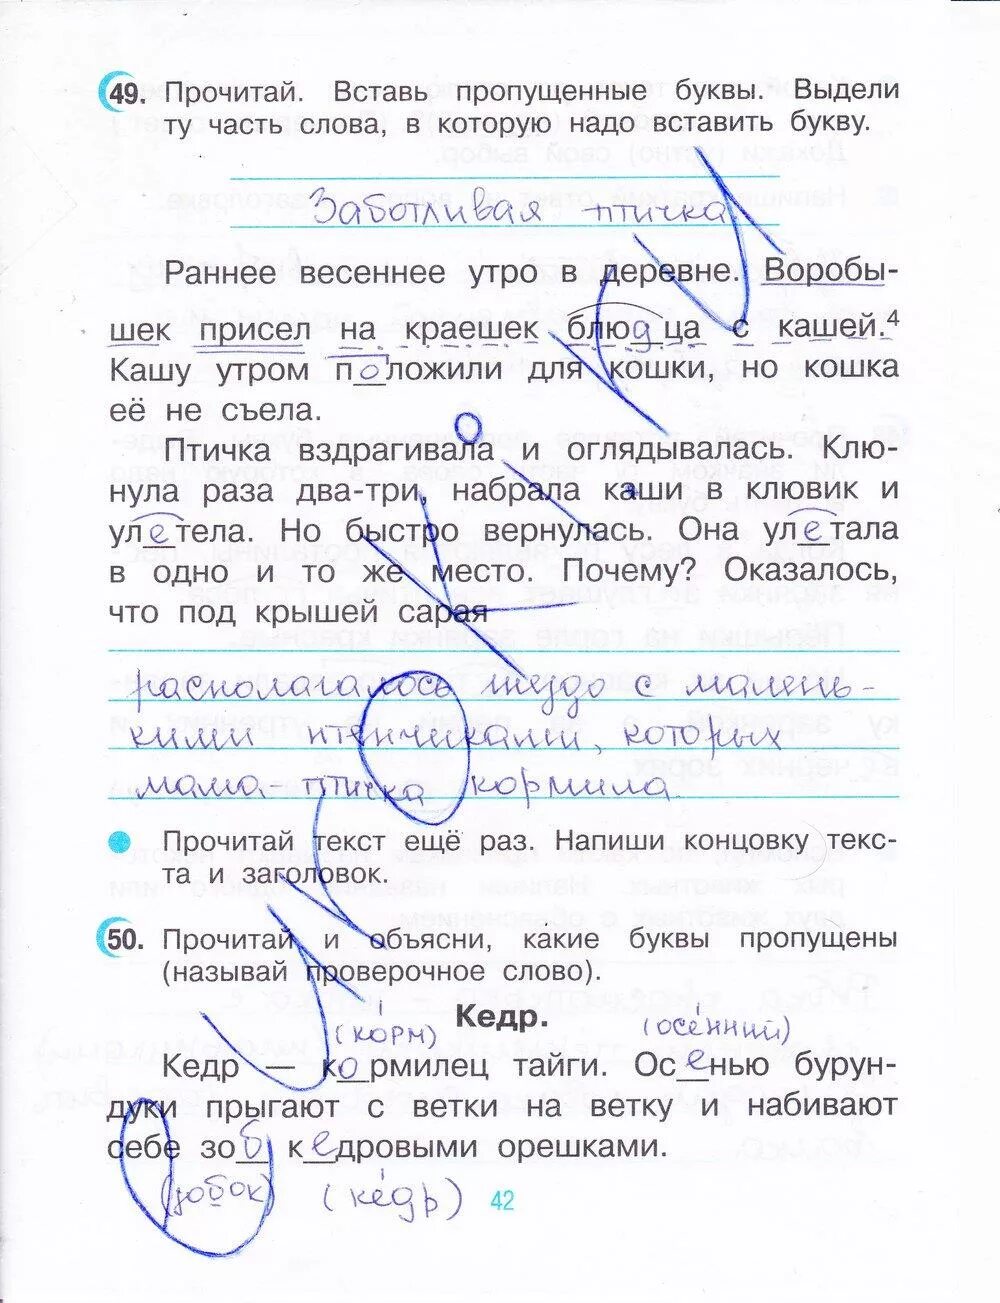 49. Прочитай. Вставь пропущенные буквы. Выдели
ту часть слова, в которую надо вставить букву.
Заботливая птичка
Раннее весеннее утро в деревне. Воробы-
шек присел на краешек блюдца с кашей.4
Кашу утром положили для кошки, но кошка
её не съела.
Птичка вздрагивала и оглядывалась. Клю-
нула раза два-три, набрала каши в клювик и
улетела. Но быстро вернулась. Она улетала
в одно и то же место. Почему? Оказалось,
что под крышей сарая
располагалось гнездо с малень-
кими птенчиками, которых
мама-птичка кормила.
Прочитай текст ещё раз. Напиши концовку текс-
та и заголовок.
50. Прочитай и объясни, какие буквы пропущены
(называй проверочное слово).
Кедр.
(ко́рм) (осе́нний)
Кедр — кормилец тайги. Осенью бурун-
дуки прыгают с ветки на ветку и набивают
себе зоб кедровыми орешками.
(зобок) (ке́др)
42